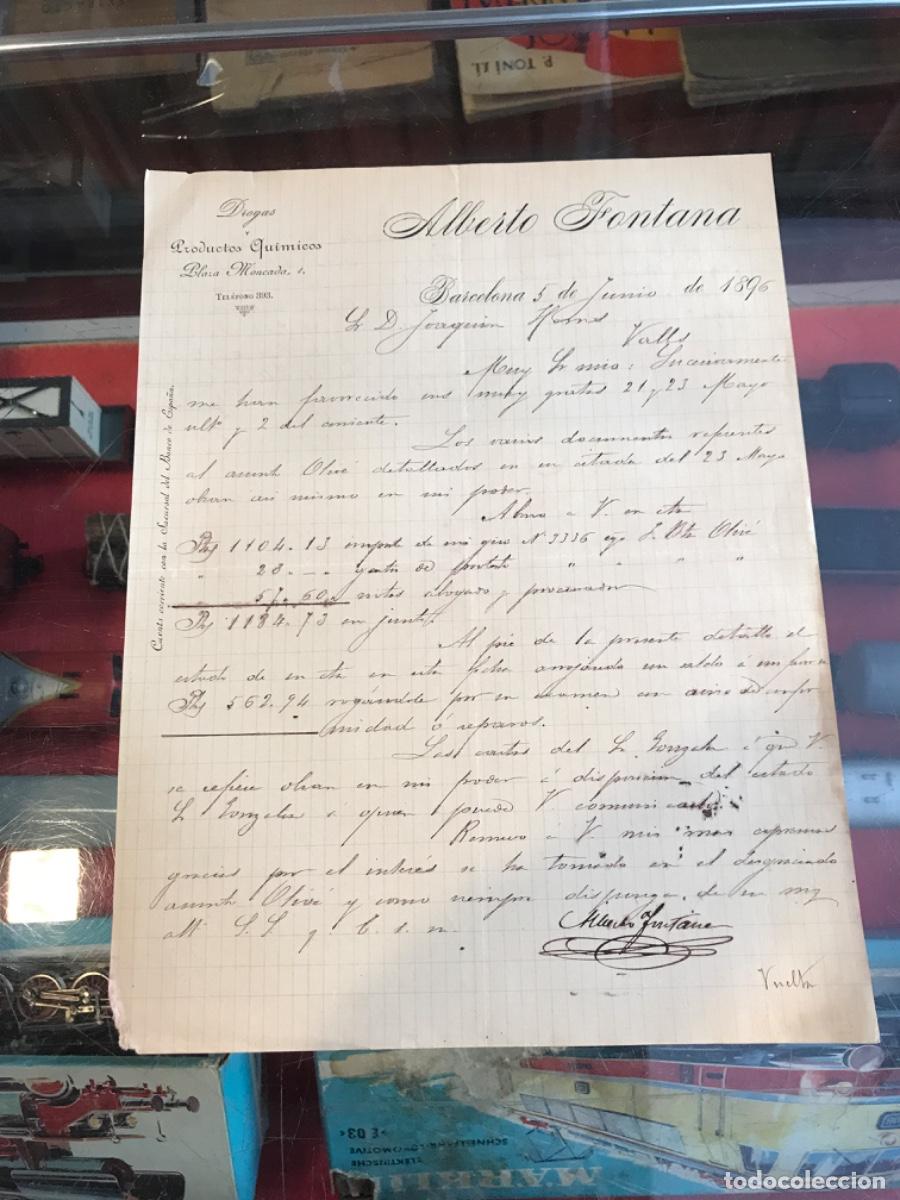 P. TONI LL.
Drogas
y
Productos Químicos
Plaza Moncada, 1.
Teléfono 893.
Alberto Fontana
Barcelona 5 de Junio de 1896
Sr D. Joaquin Homs
Valls
Muy Sr mio: Sucesivamente
me han favorecido sus muy gratas 21 y 23 Mayo
ulto y 2 del corriente.
Los varios documentos referentes
al asunto Olivé detallados en su citada del 23 Mayo
obran asi mismo en mi poder.
Abono a V. en cta
Pts 1104.13 importe de mi giro Nº 3336 cgo J. Bta Olivé
" 23. - gastos de protesto " " " "
57.60 notas abogado y procurador
Pts 1184.73 en junto.
Al pié de la presente detallo el
estado de su cta en esta fecha arrojando un saldo á mi favor
Pts 562.94 rogándole por su examen un aviso de confor
midad ó reparos.
Las cartas del Sr Gonzalez á que V.
se refiere obran en mi poder á disposicion del citado
Sr Gonzalez á quien puede V. comunicarlo.
Renuevo á V. mis mas expresivas
gracias por el interés se ha tomado en el desgraciado
asunto Olivé y como siempre disponga de su muy
att S. S. q b. s. m.
Alberto Fontana
Vuelta
Cuenta corriente con la Sucursal del Banco de España.
E 03
SCHNELLFAHRLOKOMOTIVE
ELEKTRISCHE
MÄRKLIN
todocoleccion